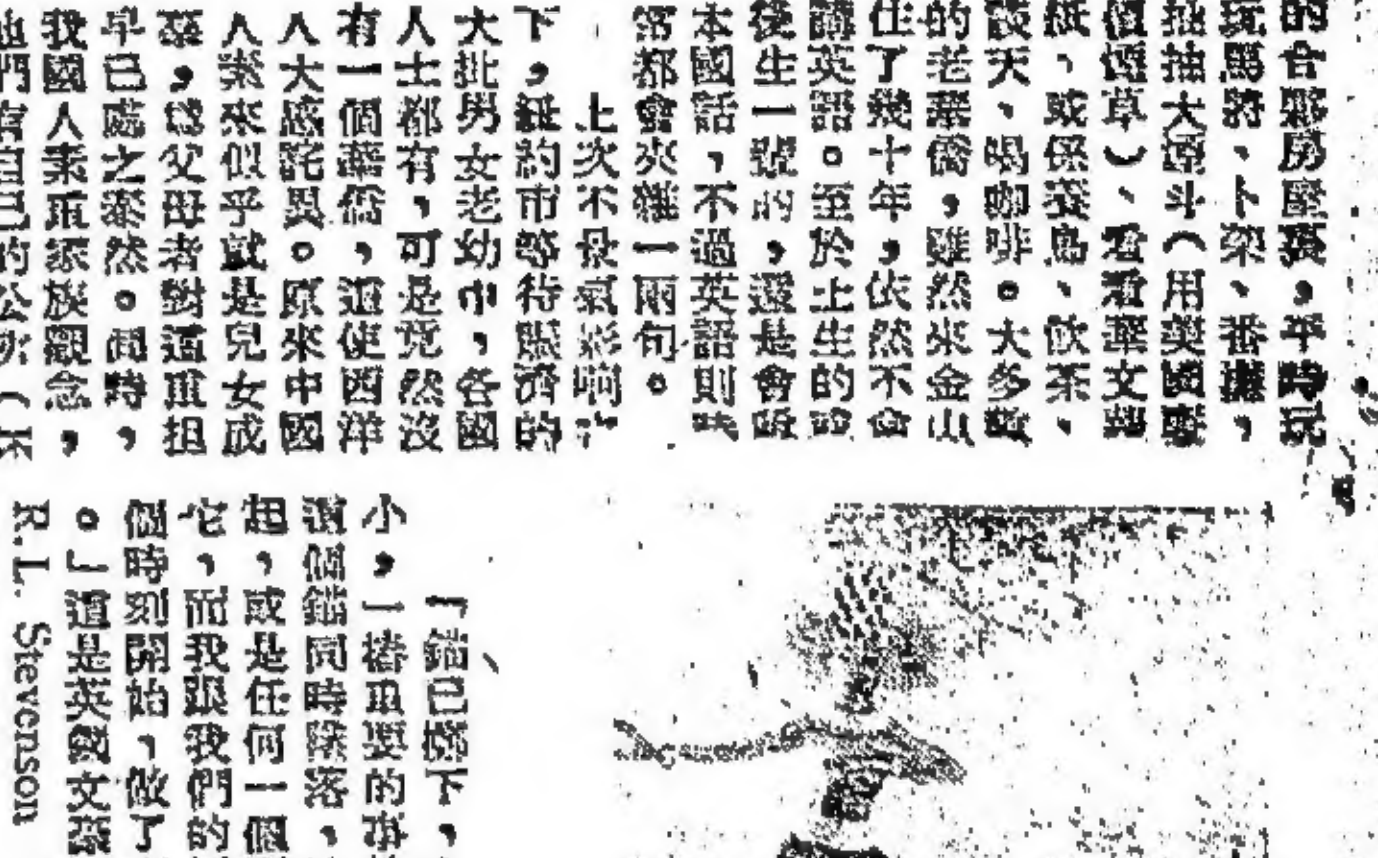 的合夥房壓頭，平時玩
玩馬將、卜架、番攤，
抽抽大煙斗（用美國專
值煙草）、看看華文報
紙、或係養鳥、飲茶、
談天、喝咖啡。大多數
的老華僑，雖然來金山
住了幾十年，依然不會
講英語。至於土生的
後生一號的，還是會
本國話，不過英語則
常都會夾雜一兩句。
上次不景氣影响
下，紐約市等待賑濟的
大批男女老幼中，各國
人士都有，可是竟然沒
有一個華僑，這使西洋
人大感詫異。原來中國
人家來似乎就是兒女成
羣，為父母者對這重担
早已處之泰然。同時，
我國人素重家族觀念，
他們有自己的公
『錨已擲下，
小，一樁重要的事
這個錨同時墜落，
起，或是任何一個
它，而我跟我們的
個時刻開始，做了
。』這是英國文豪
R.L. Stevenson